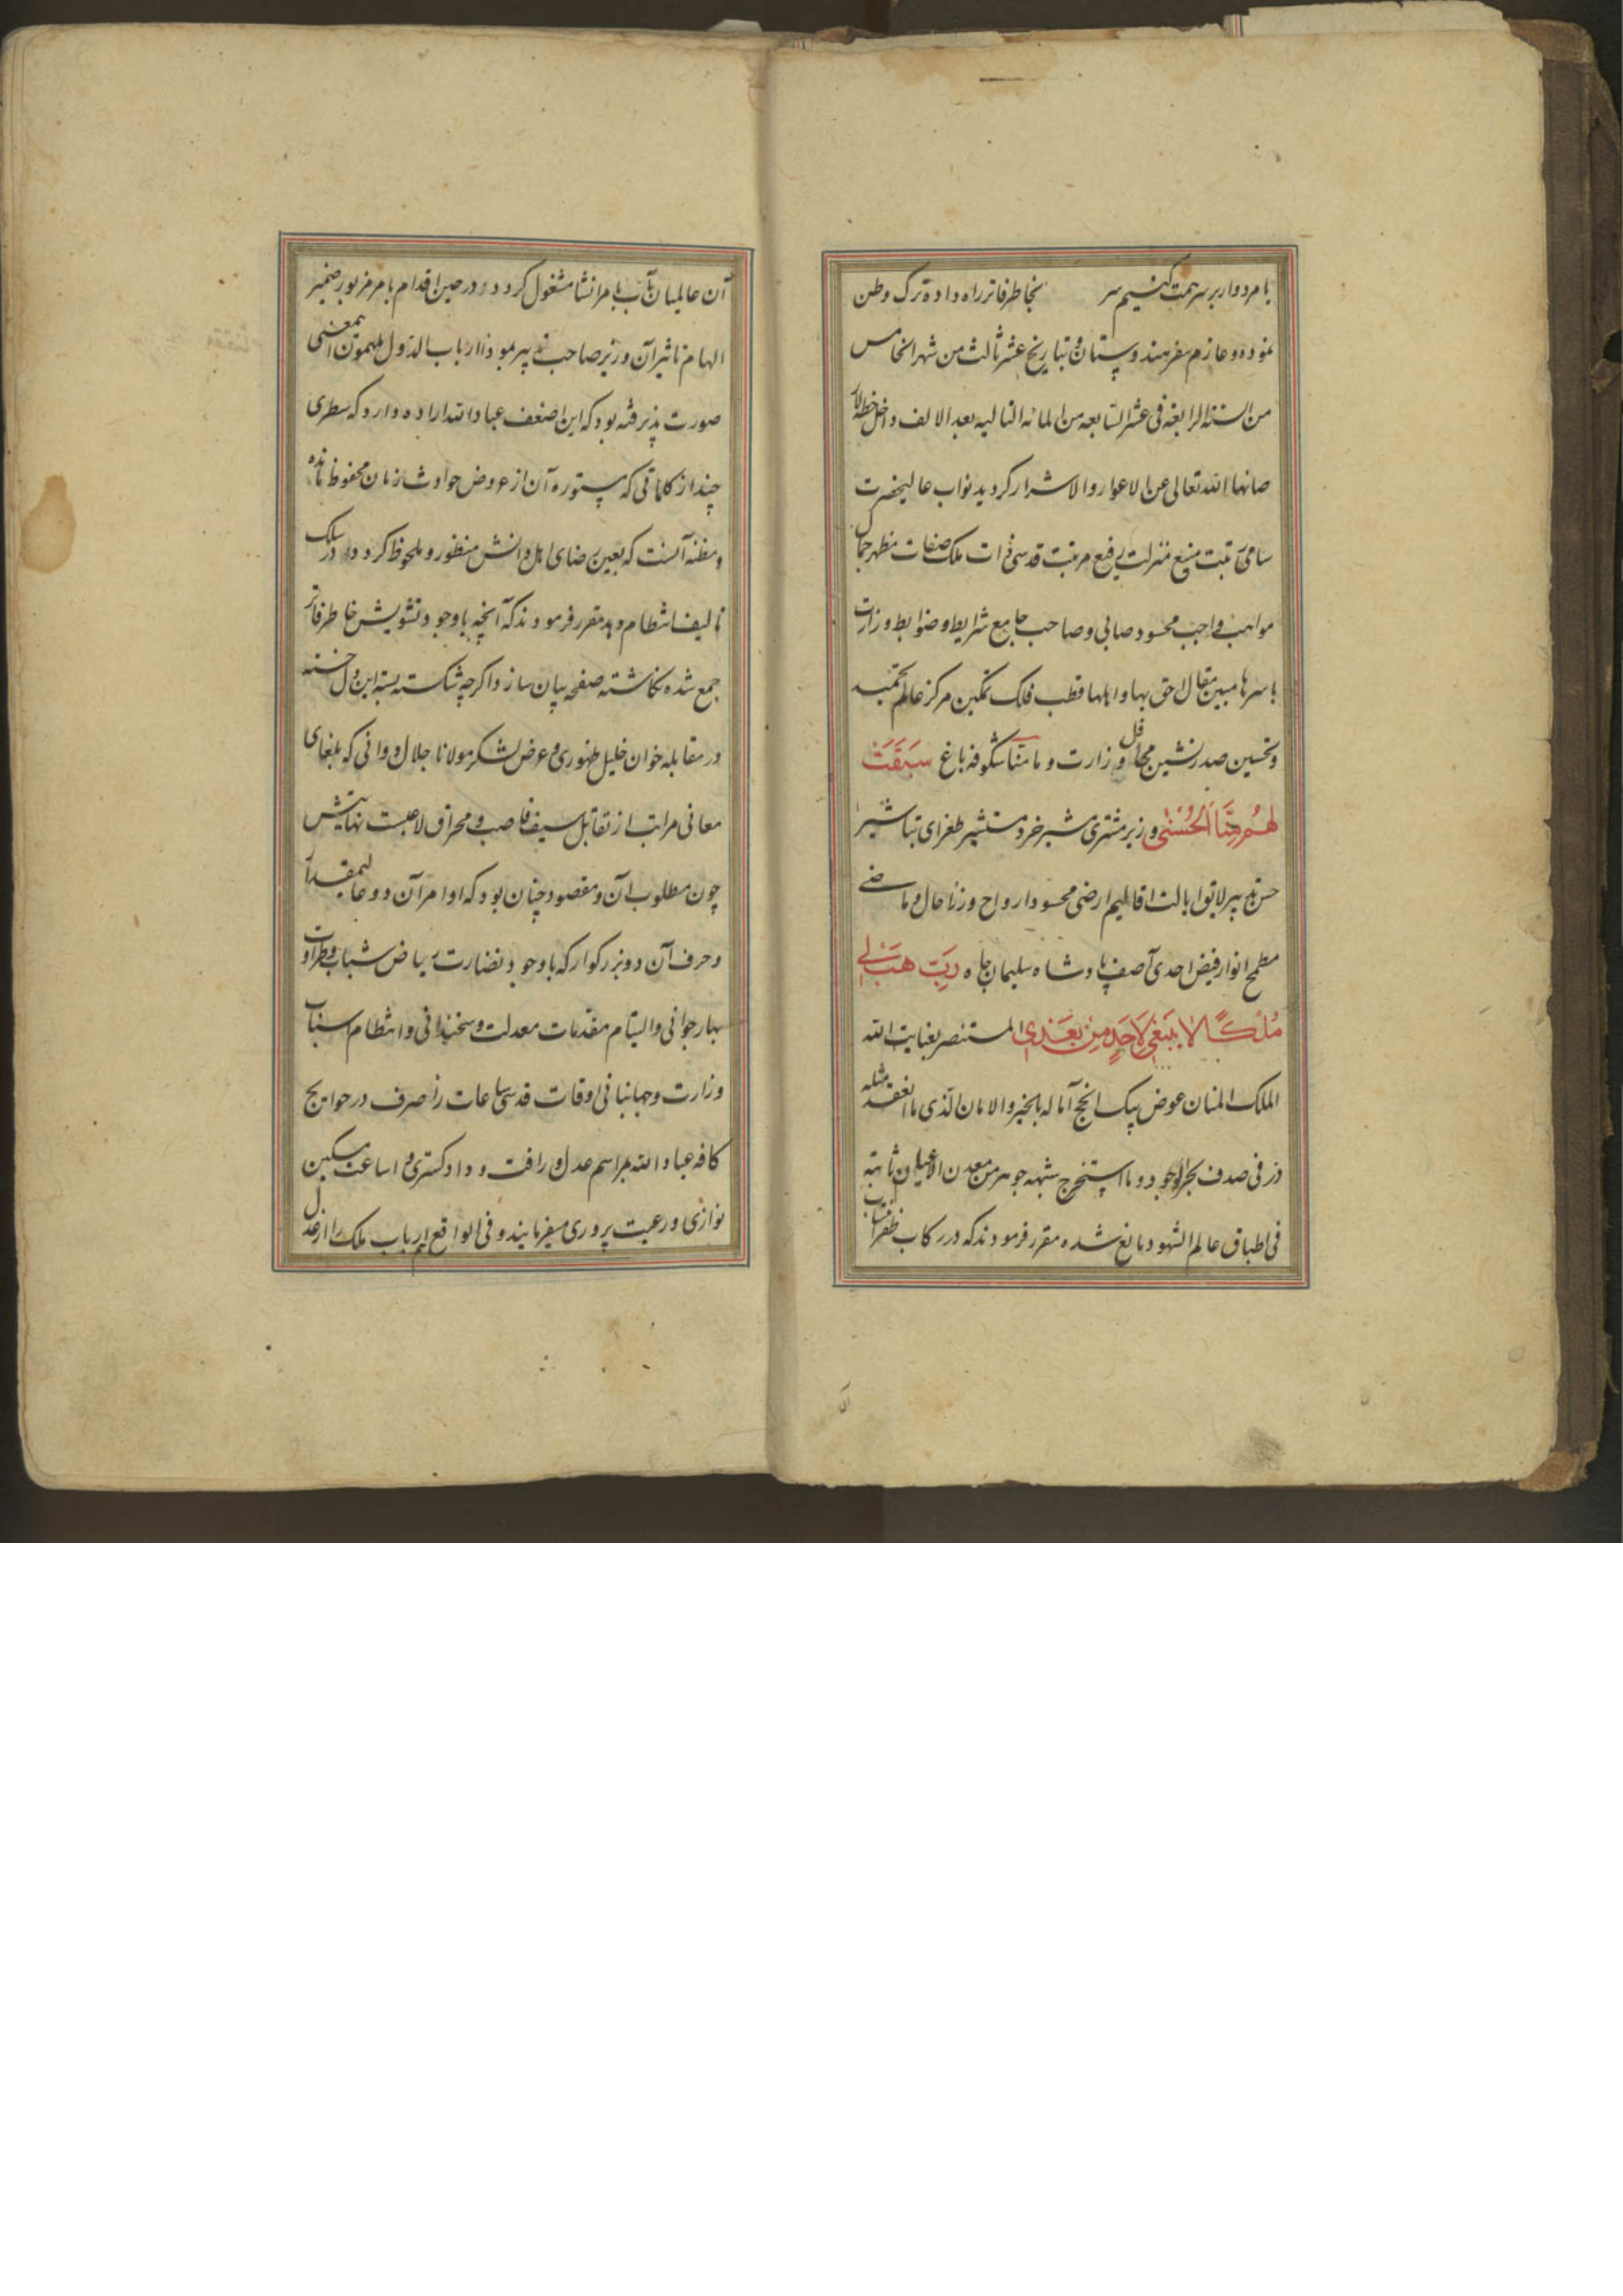 یا مردوار بر سر همت کنیم سر بخاطر فاتر راه داده ترک وطن
نموده و عازم سفر هندوستان و بتاریخ عشر ثالث من شهر الخامس
من السنة الرابعه فی عشر السابعه من المائه التالیه بعد الالف داخل خطه
صانها الله تعالی عن الاعوار والاشرار کردید نواب عالیحضرت
سامی رتبت منیع منزلت رفیع مرتبت قدسی ذات ملک صفات مظهر جمال
مواهب واجب محسود صابی و صاحب جامع شرایط و ضوابط وزارت
باسرها مبین مقال حق بها و اهلها قطب فلک تمکین مرکز عالم
و تحسین صدر نشین محافل وزارت و مانتا شکوفه باغ سَبَقَتْ
لَهُم مِنَّا الحُسْنی وزیر مشتری مشیر خرد مستشیر طغرای تباشیر
حسن تدبیر لاتق ایالت اقالیم ارضی محسود ارواح وزرا حال و ماضی
مطمح انوار فیض احدی آصف پادشاه سلیمان جاه رَبِّ هَبْ لِی
مُلْکًا لا یَنْبَغِی لِاَحَدٍ مِنْ بَعْدِی المستنصر بعنایت الله
الملک المنان عوض بیک انجح آماله بالخیر والامان الذی ما انعقد مثله
در فی صدف بحر الوجود و ما استخرج شبهه جوهر من معدن الاعیان ثابته
فی اطباق عالم الشهود مانع شده مقرر فرمودند که در رکاب ظفر
آن عالمیان مآب بامر انشا مشغول کردد و در حین اقدام بامر مزبور ضمیر
الهام تاثیر آن وزیر صاحب تدبیر بموذا ارباب الدول ملهمون اینمعنی
صورت پذیرفته بود که این اضعف عباد الله اراده دارد که سطری
چند از کلماتی که مستوره آن از عروض حوادث زمان محفوظ مانده
و مظنه آنست که بعین رضای اهل دانش منظور و ملحوظ کردد در سلک
تالیف انتظام دهد مقرر فرمودند که آنچه با وجود تشویش خاطر فاتر
جمع شده نکاشته صفحه بیان سازد اکرچه شکسته بسته این دل خسته
در مقابله خوان خلیل ظهوری و عرض لشکر مولانا جلال دوانی که بلغای
معانی مراتب از تقابل سیف قاصب و مخراق لاعبت نهایتش
چون مطلوب آن و مقصود چنان بود که اوامر آن دو عالیمقدار
و حرف آن دو بزرکوار که با وجود نضارت ریاض شباب و طراوت
بهار جوانی والیتام مقدمات معدلت و سخندانی و انتظام اسباب
وزارت و جهانبانی اوقات قدسی ساعات را صرف در حوایج
کافه عباد الله بمراسم عدل و رافت و دادکستری و اساعت مسکین
نوازی و رعیت پروری میفرمایند و فی الواقع ارباب ملک را از عدل